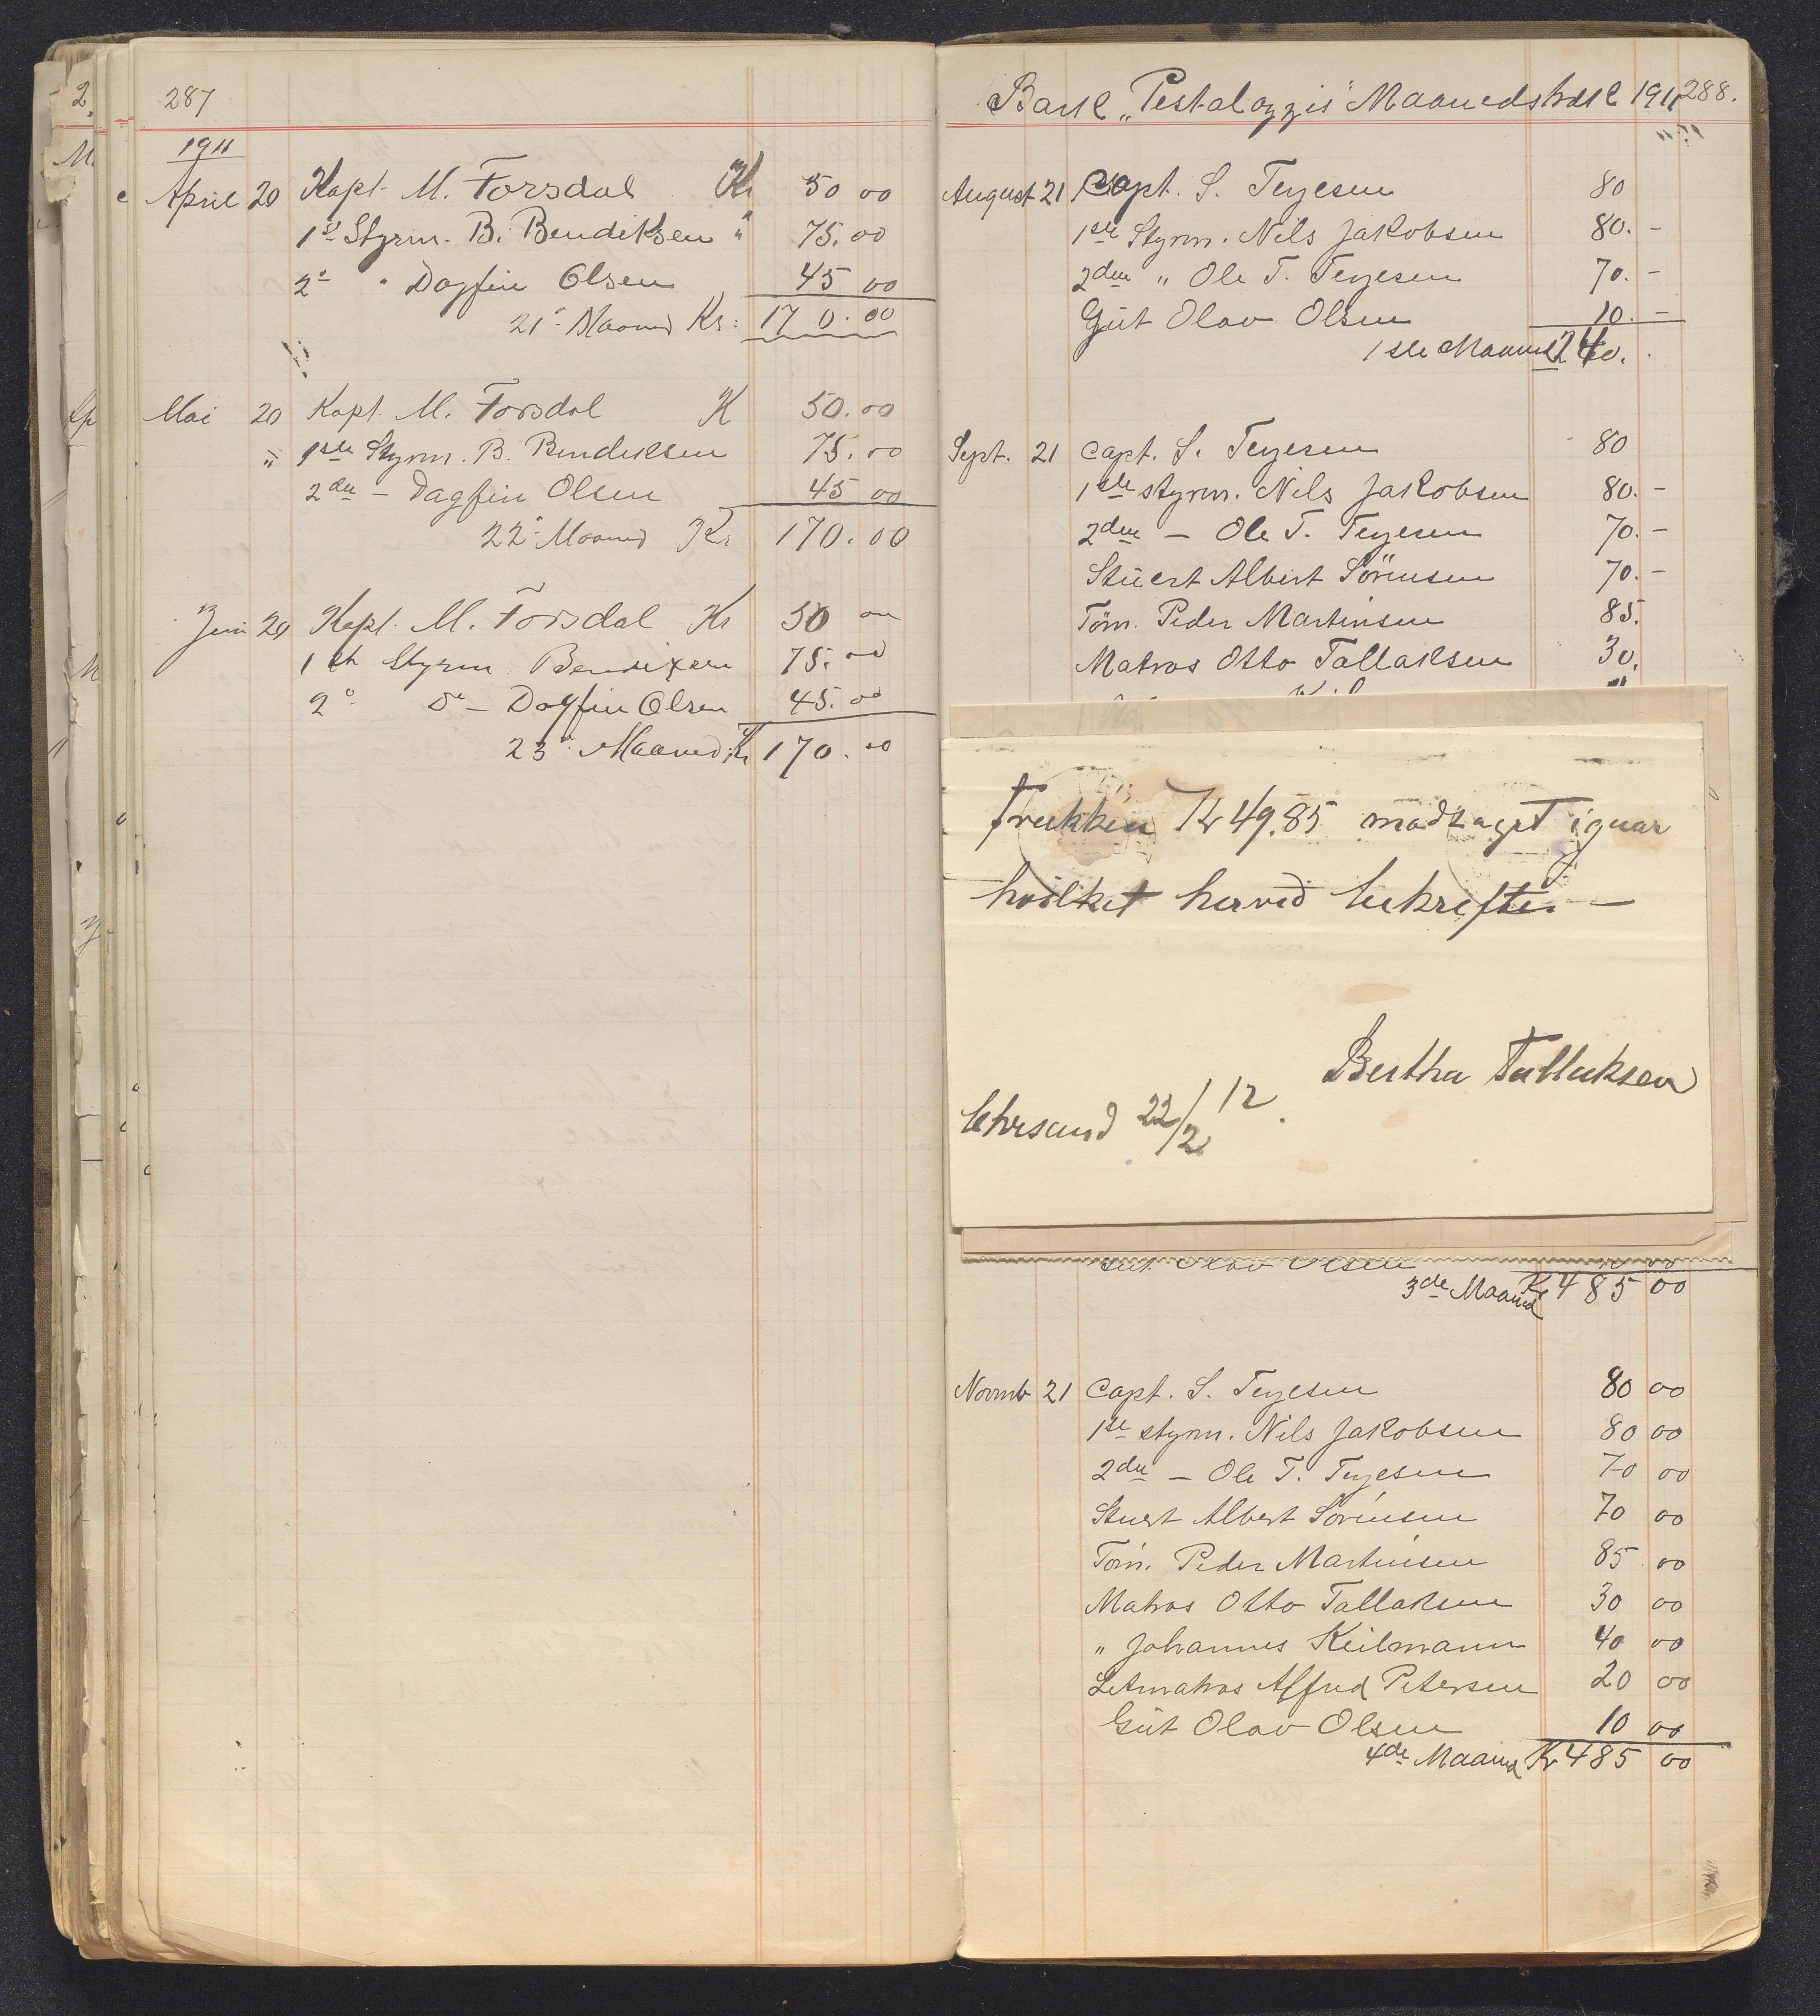 287
1911
April 20 Kapt. M. Forsdal Kr 50 00
1ste Styrm. B. Bendiksen " 75.00
2- " Dagfin Olsen 45 00
21- Maaned Kr: 170.00
Mai 20 Kapt. M. Forsdal K 50.00
" 1ste Styrm. B. Bendiksen 75.00
2den - Dagfin Olsen 45 00
22- Maaned Kr 170.00
Juni 20 Kapt. M. Forsdal Kr 50 00
1ste Styrm. Bendixsen 75.00
2- Do - Dagfin Olsen 45.00
23- Maaned Kr 170.00
Bark "Pestalozzis" Maanedstræk 1911 288.
August 21 Capt. S. Terjesen 80
1ste Styrm. Nils Jakobsen 80.-
2den " Ole T. Terjesen 70.-
Gut Olav Olsen 10.-
1ste Maaned 240.
Sept. 21 Capt. S. Terjesen 80
1ste styrm. Nils Jakobsen 80.-
2den - Ole T. Terjesen 70.-
Stuert Albert Sörensen 70.-
Töm. Peder Martinsen 85.
Matros Otto Tallaksen 30.
Trukken Kr 49.85 modtaget igaar
hvilket herved bekreftes -
Bertha Tallaksen
Chrsand 22/2 12.
Gut Olav Olsen
3de Maaned Kr 485 00
Novmb 21 Capt. S. Terjesen 80 00
1ste styrm. Nils Jakobsen 80 00
2den - Ole T. Terjesen 70 00
Stuert Albert Sörensen 70 00
Töm. Peder Martinsen 85 00
Matros Otto Tallaksen 30 00
" Johannes Keilmann 40 00
Letmatros Alfred Petersen 20 00
Gut Olav Olsen 10 00
4de Maaned Kr 485 00